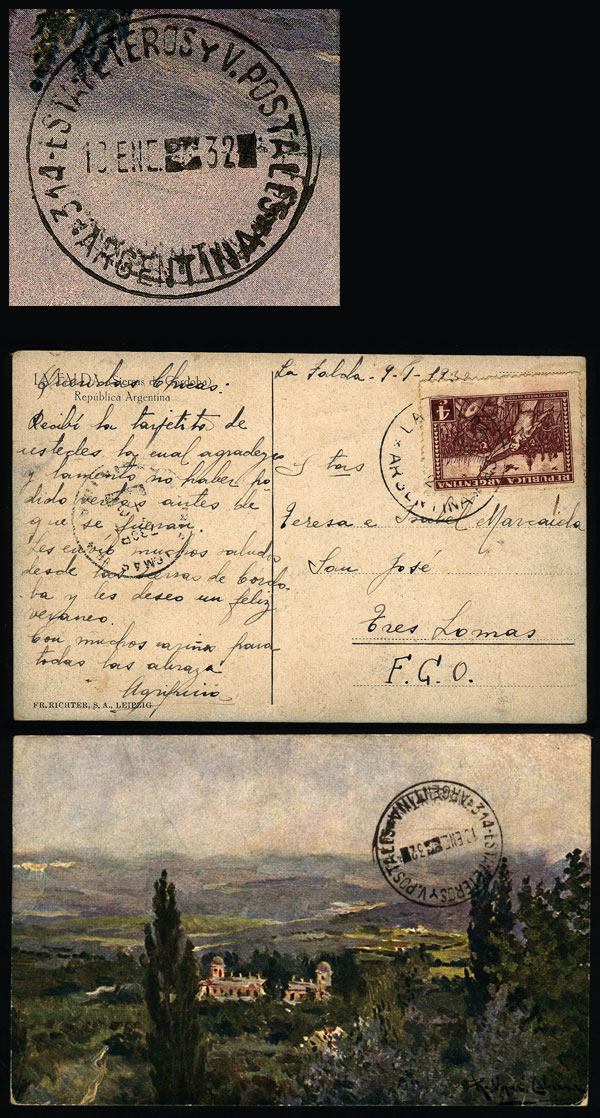 314-ESTAFETEROS Y V. POSTALES
ARGENTINA
13 ENE. 32
LA FALDA (Sierras de Córdoba)
República Argentina
Queridas Chicas:
Recibí la tarjetita de
ustedes la cual agradezco
y lamento no haber po
dido verlas antes de
que se fueran.
Les envió muchos saludos
desde las sierras de Córdo
ba y les deseo un feliz
veraneo.
Con muchos cariños para
todas las abraza
FR. RICHTER, S. A., LEIPZIG
La Falda - 9-I-1932
LA
ARGENTINA
4
REPUBLICA ARGENTINA
Stas
Teresa e Isabel
San José
Tres Lomas
F.C.O.
314-ESTAFETEROS Y V. POSTALES
ARGENTINA
13 ENE. 32